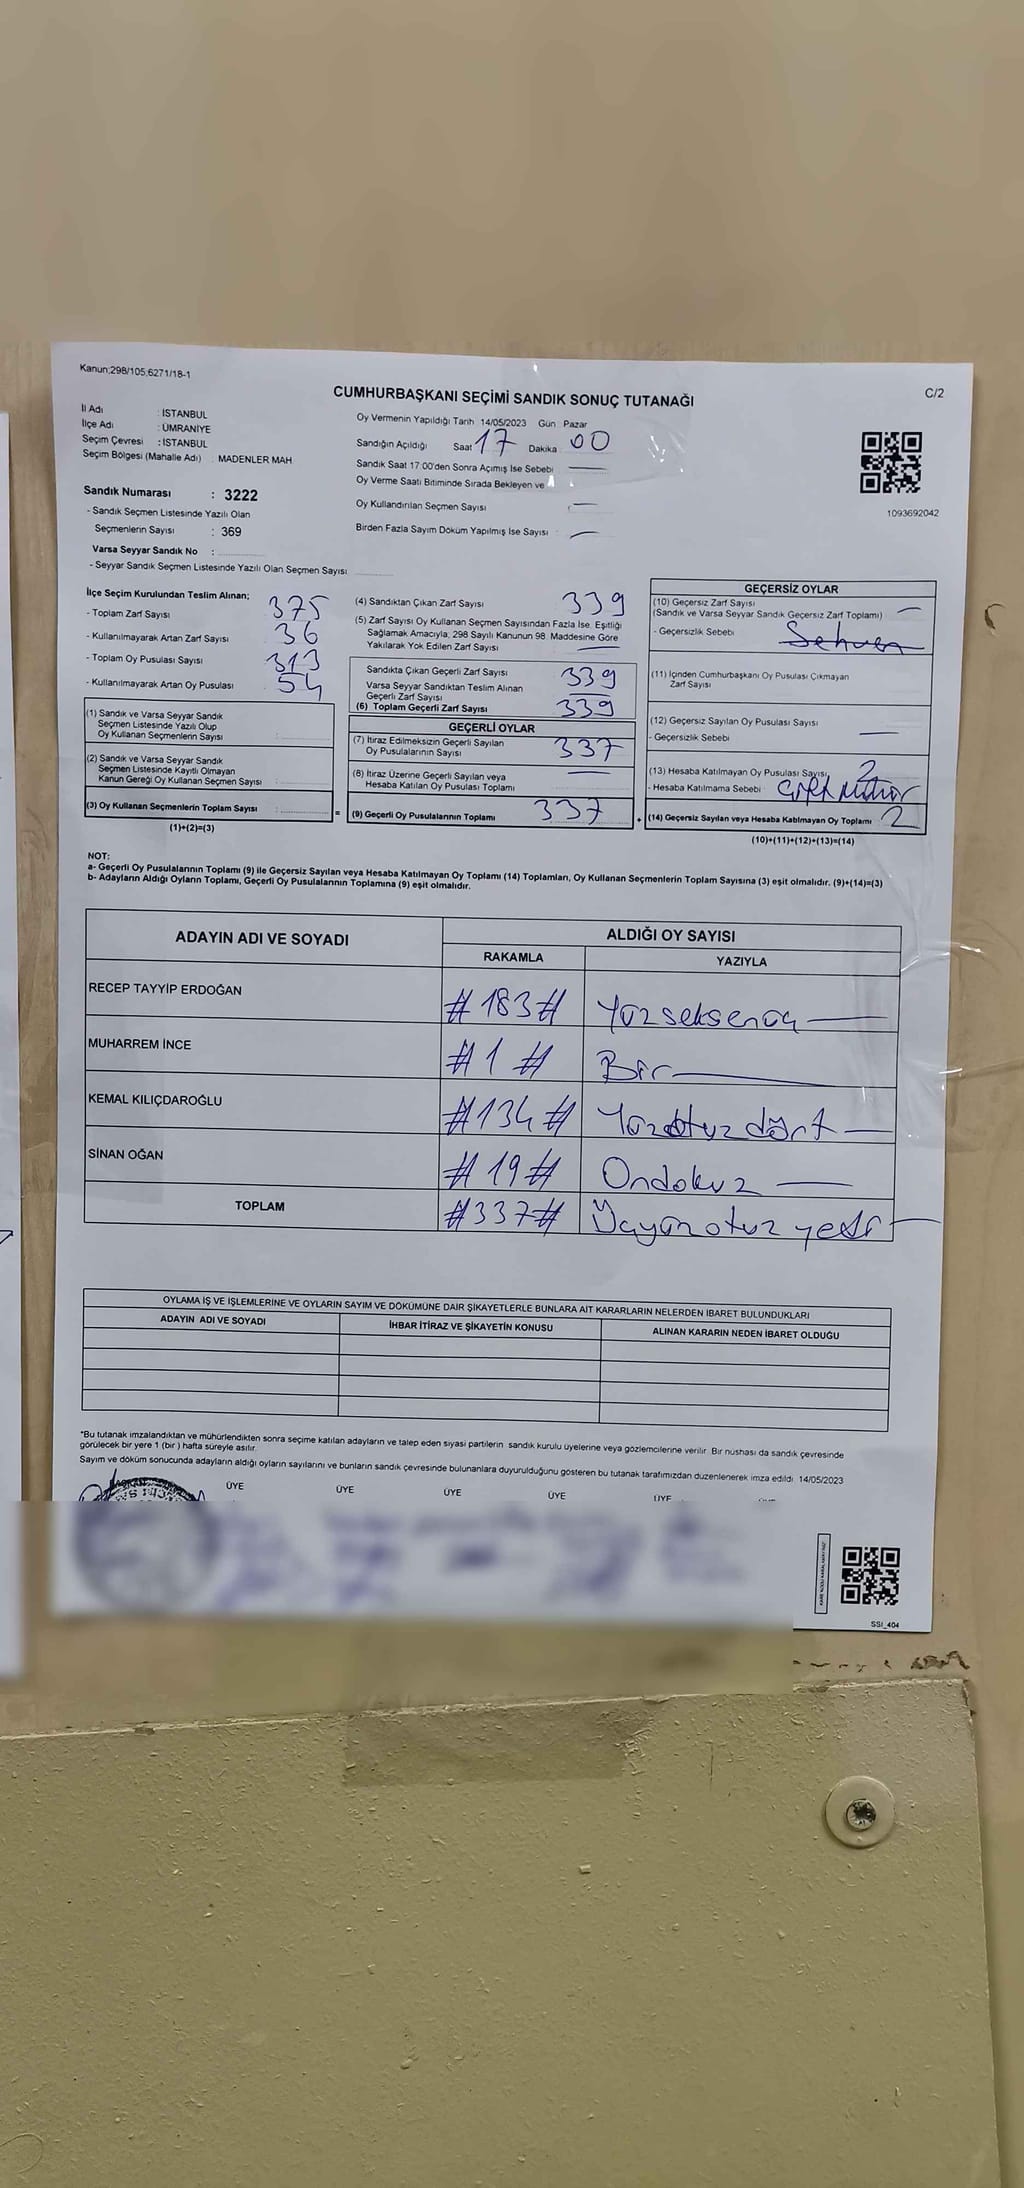 Kanun;298/105;6271/18-1
CUMHURBAŞKANI SEÇİMİ SANDIK SONUÇ TUTANAĞI
C/2
İl Adı : İSTANBUL
İlçe Adı : ÜMRANİYE
Seçim Çevresi : İSTANBUL
Seçim Bölgesi (Mahalle Adı) : MADENLER MAH
Sandık Numarası : 3222
- Sandık Seçmen Listesinde Yazılı Olan
Seçmenlerin Sayısı : 369
Varsa Seyyar Sandık No :
- Seyyar Sandık Seçmen Listesinde Yazılı Olan Seçmen Sayısı
Oy Vermenin Yapıldığı Tarih 14/05/2023 Gün Pazar
Sandığın Açıldığı Saat 17 Dakika 00
Sandık Saat 17:00'den Sonra Açımış İse Sebebi
Oy Verme Saati Bitiminde Sırada Bekleyen ve
Oy Kullandırılan Seçmen Sayısı
Birden Fazla Sayım Döküm Yapılmış İse Sayısı
1093692042
İlçe Seçim Kurulundan Teslim Alınan;
- Toplam Zarf Sayısı 375
- Kullanılmayarak Artan Zarf Sayısı 36
- Toplam Oy Pusulası Sayısı
- Kullanılmayarak Artan Oy Pusulası 54
(1) Sandık ve Varsa Seyyar Sandık
Seçmen Listesinde Yazılı Olup
Oy Kullanan Seçmenlerin Sayısı :
(2) Sandık ve Varsa Seyyar Sandık
Seçmen Listesinde Kayıtlı Olmayan
Kanun Gereği Oy Kullanan Seçmen Sayısı :
(3) Oy Kullanan Seçmenlerin Toplam Sayısı : =
(1)+(2)=(3)
(4) Sandıktan Çıkan Zarf Sayısı 339
(5) Zarf Sayısı Oy Kullanan Seçmen Sayısından Fazla İse, Eşitliği
Sağlamak Amacıyla, 298 Sayılı Kanunun 98. Maddesine Göre
Yakılarak Yok Edilen Zarf Sayısı
Sandıkta Çıkan Geçerli Zarf Sayısı 339
Varsa Seyyar Sandıktan Teslim Alınan
Geçerli Zarf Sayısı
(6) Toplam Geçerli Zarf Sayısı 339
GEÇERLİ OYLAR
(7) İtiraz Edilmeksizin Geçerli Sayılan
Oy Pusulalarının Sayısı 337
(8) İtiraz Üzerine Geçerli Sayılan veya
Hesaba Katılan Oy Pusulası Toplamı
(9) Geçerli Oy Pusulalarının Toplamı 337 +
GEÇERSİZ OYLAR
(10) Geçersiz Zarf Sayısı
(Sandık ve Varsa Seyyar Sandık Geçersiz Zarf Toplamı)
- Geçersizlik Sebebi Sehven
(11) İçinden Cumhurbaşkanı Oy Pusulası Çıkmayan
Zarf Sayısı
(12) Geçersiz Sayılan Oy Pusulası Sayısı
- Geçersizlik Sebebi
(13) Hesaba Katılmayan Oy Pusulası Sayısı 2
- Hesaba Katılmama Sebebi
(14) Geçersiz Sayılan veya Hesaba Katılmayan Oy Toplamı 2
(10)+(11)+(12)+(13)=(14)
NOT:
a- Geçerli Oy Pusulalarının Toplamı (9) ile Geçersiz Sayılan veya Hesaba Katılmayan Oy Toplamı (14) Toplamları, Oy Kullanan Seçmenlerin Toplam Sayısına (3) eşit olmalıdır. (9)+(14)=(3)
b- Adayların Aldığı Oyların Toplamı, Geçerli Oy Pusulalarının Toplamına (9) eşit olmalıdır.
ADAYIN ADI VE SOYADI
ALDIĞI OY SAYISI
RAKAMLA
YAZIYLA
RECEP TAYYİP ERDOĞAN #183# Yüzseksenüç
MUHARREM İNCE #1# Bir
KEMAL KILIÇDAROĞLU #134# Yüzotuzdört
SİNAN OĞAN #19# Ondokuz
TOPLAM #337# Üçyüzotuzyedi
OYLAMA İŞ VE İŞLEMLERİNE VE OYLARIN SAYIM VE DÖKÜMÜNE DAİR ŞİKAYETLERLE BUNLARA AİT KARARLARIN NELERDEN İBARET BULUNDUKLARI
ADAYIN ADI VE SOYADI
İHBAR İTİRAZ VE ŞİKAYETİN KONUSU
ALINAN KARARIN NEDEN İBARET OLDUĞU
*Bu tutanak imzalandıktan ve mühürlendikten sonra seçime katılan adayların ve talep eden siyasi partilerin sandık kurulu üyelerine veya gözlemcilerine verilir. Bir nüshası da sandık çevresinde
görülecek bir yere 1 (bir ) hafta süreyle asılır.
Sayım ve döküm sonucunda adayların aldığı oyların sayılarını ve bunların sandık çevresinde bulunanlara duyurulduğunu gösteren bu tutanak tarafımızdan düzenlenerek imza edildi. 14/05/2023
BAŞKAN ÜYE ÜYE ÜYE ÜYE ÜYE
SSI_404